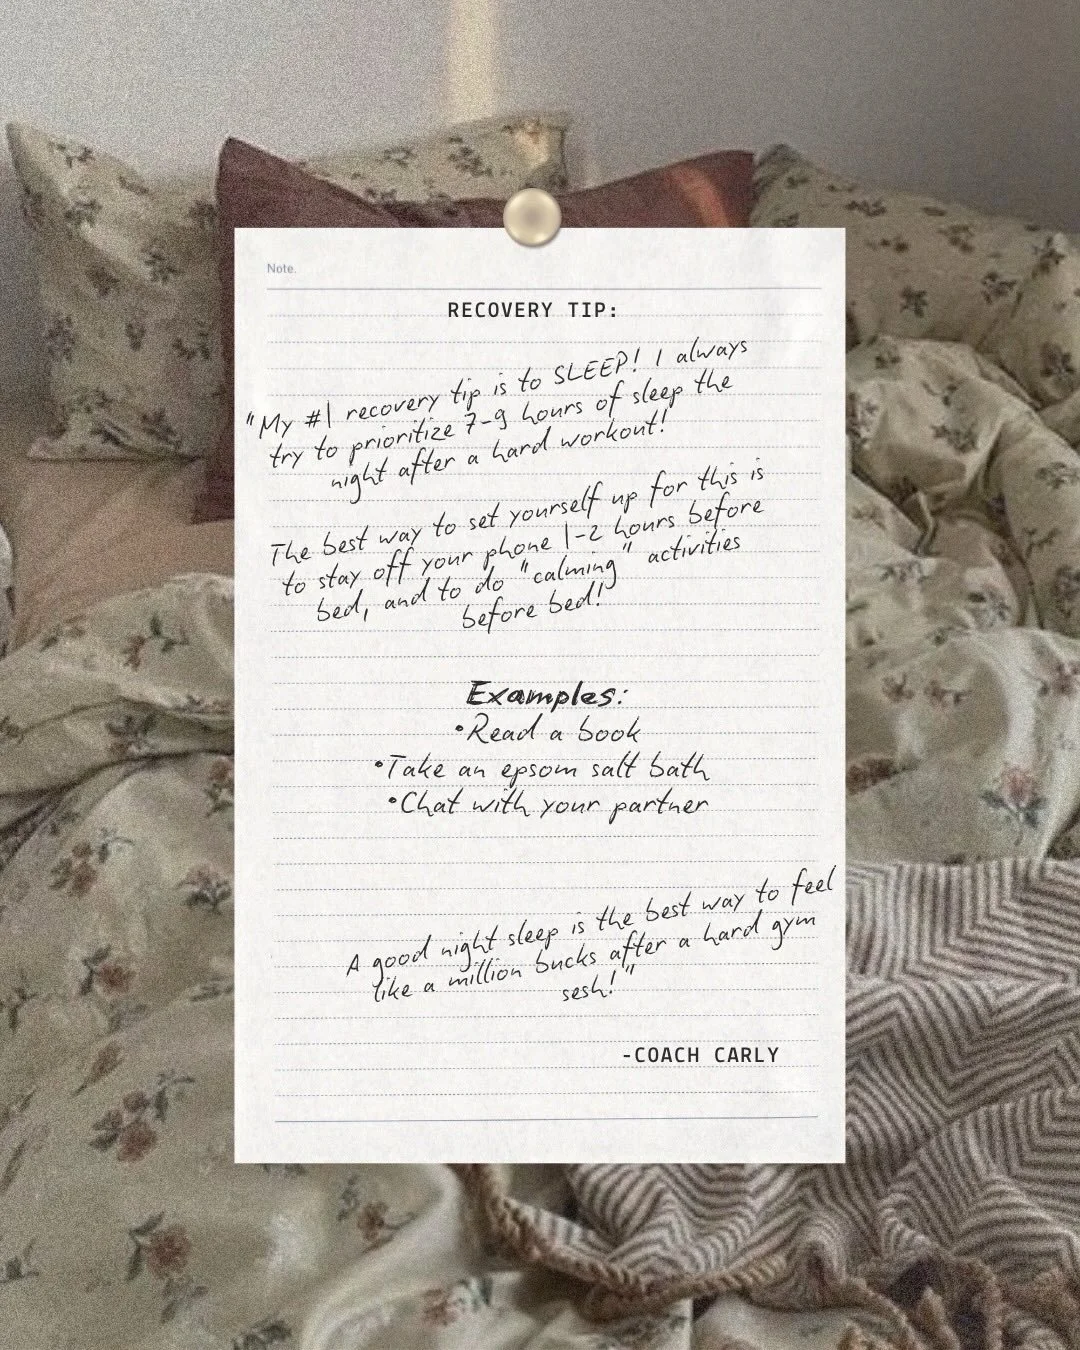 Note.
RECOVERY TIP:
"My #1 recovery tip is to SLEEP! I always
try to prioritize 7-9 hours of sleep the
night after a hard workout!
The best way to set yourself up for this is
to stay off your phone 1-2 hours before
bed, and to do "calming" activities
before bed!
Examples:
•Read a book
•Take an epsom salt bath
•Chat with your partner
A good night sleep is the best way to feel
like a million bucks after a hard gym
sesh!"
-COACH CARLY